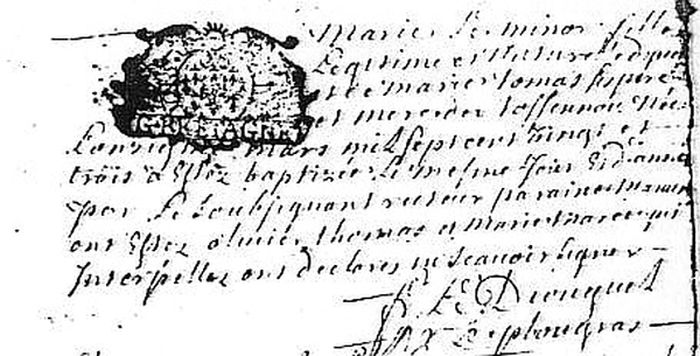 Marie Le minor fille
Legitime et Naturelle de
et de marie tomas ses pere
et mere de Née
L'onziéme mars mil sept cent vingt et
trois a Esté baptizée Le mesme Jour Et d'année
par Le Soubsignant recteur paraine et maraine
ont Estez olivier thomas et marie qui
Interpellez ont declarez ne scavoir signer
LE Diouguel